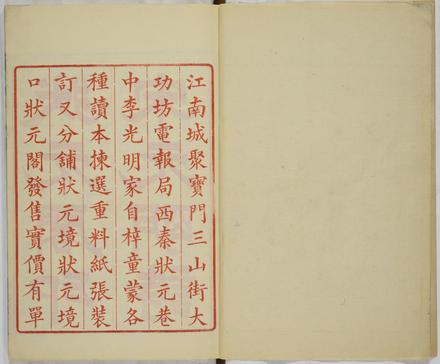 江南城聚寶門三山街大
功坊電報局西秦狀元巷
中李光明家自梓童蒙各
種讀本揀選重料紙張裝
訂又分舖狀元境狀元境
口狀元閣發售實價有單